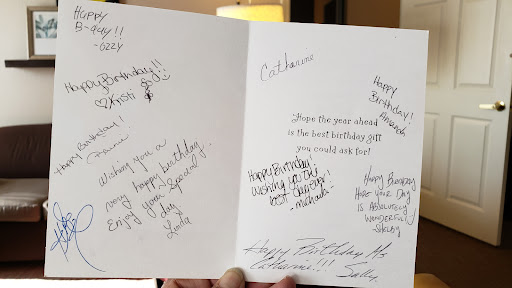 Happy
B-day!!
-Ozzy
Happy Birthday!!
Kristi
Happy Birthday!
Wishing you a
very happy birthday.
Enjoy your special
day
Linda
Catharine
Happy
Birthday!
Amanda
Hope the year ahead
is the best birthday gift
you could ask for!
Happy Birthday!
Wishing you the
best day ever!
-Michaela-
Happy Birthday
Hope your Day
is Absolutely
Wonderful
-Shelby
Happy Birthday Ms
Catharine!!!
Sally